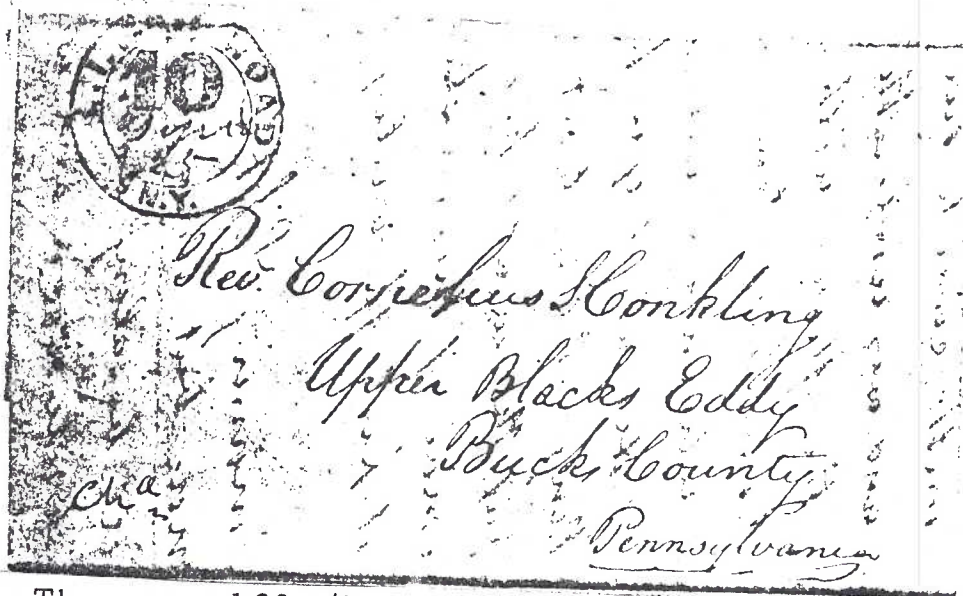 L.I. ROAD
10
25
N.Y.
Rev. Cornelius S Conkling
Upper Blacks Eddy
Bucks County
Pennsylvania
Cha